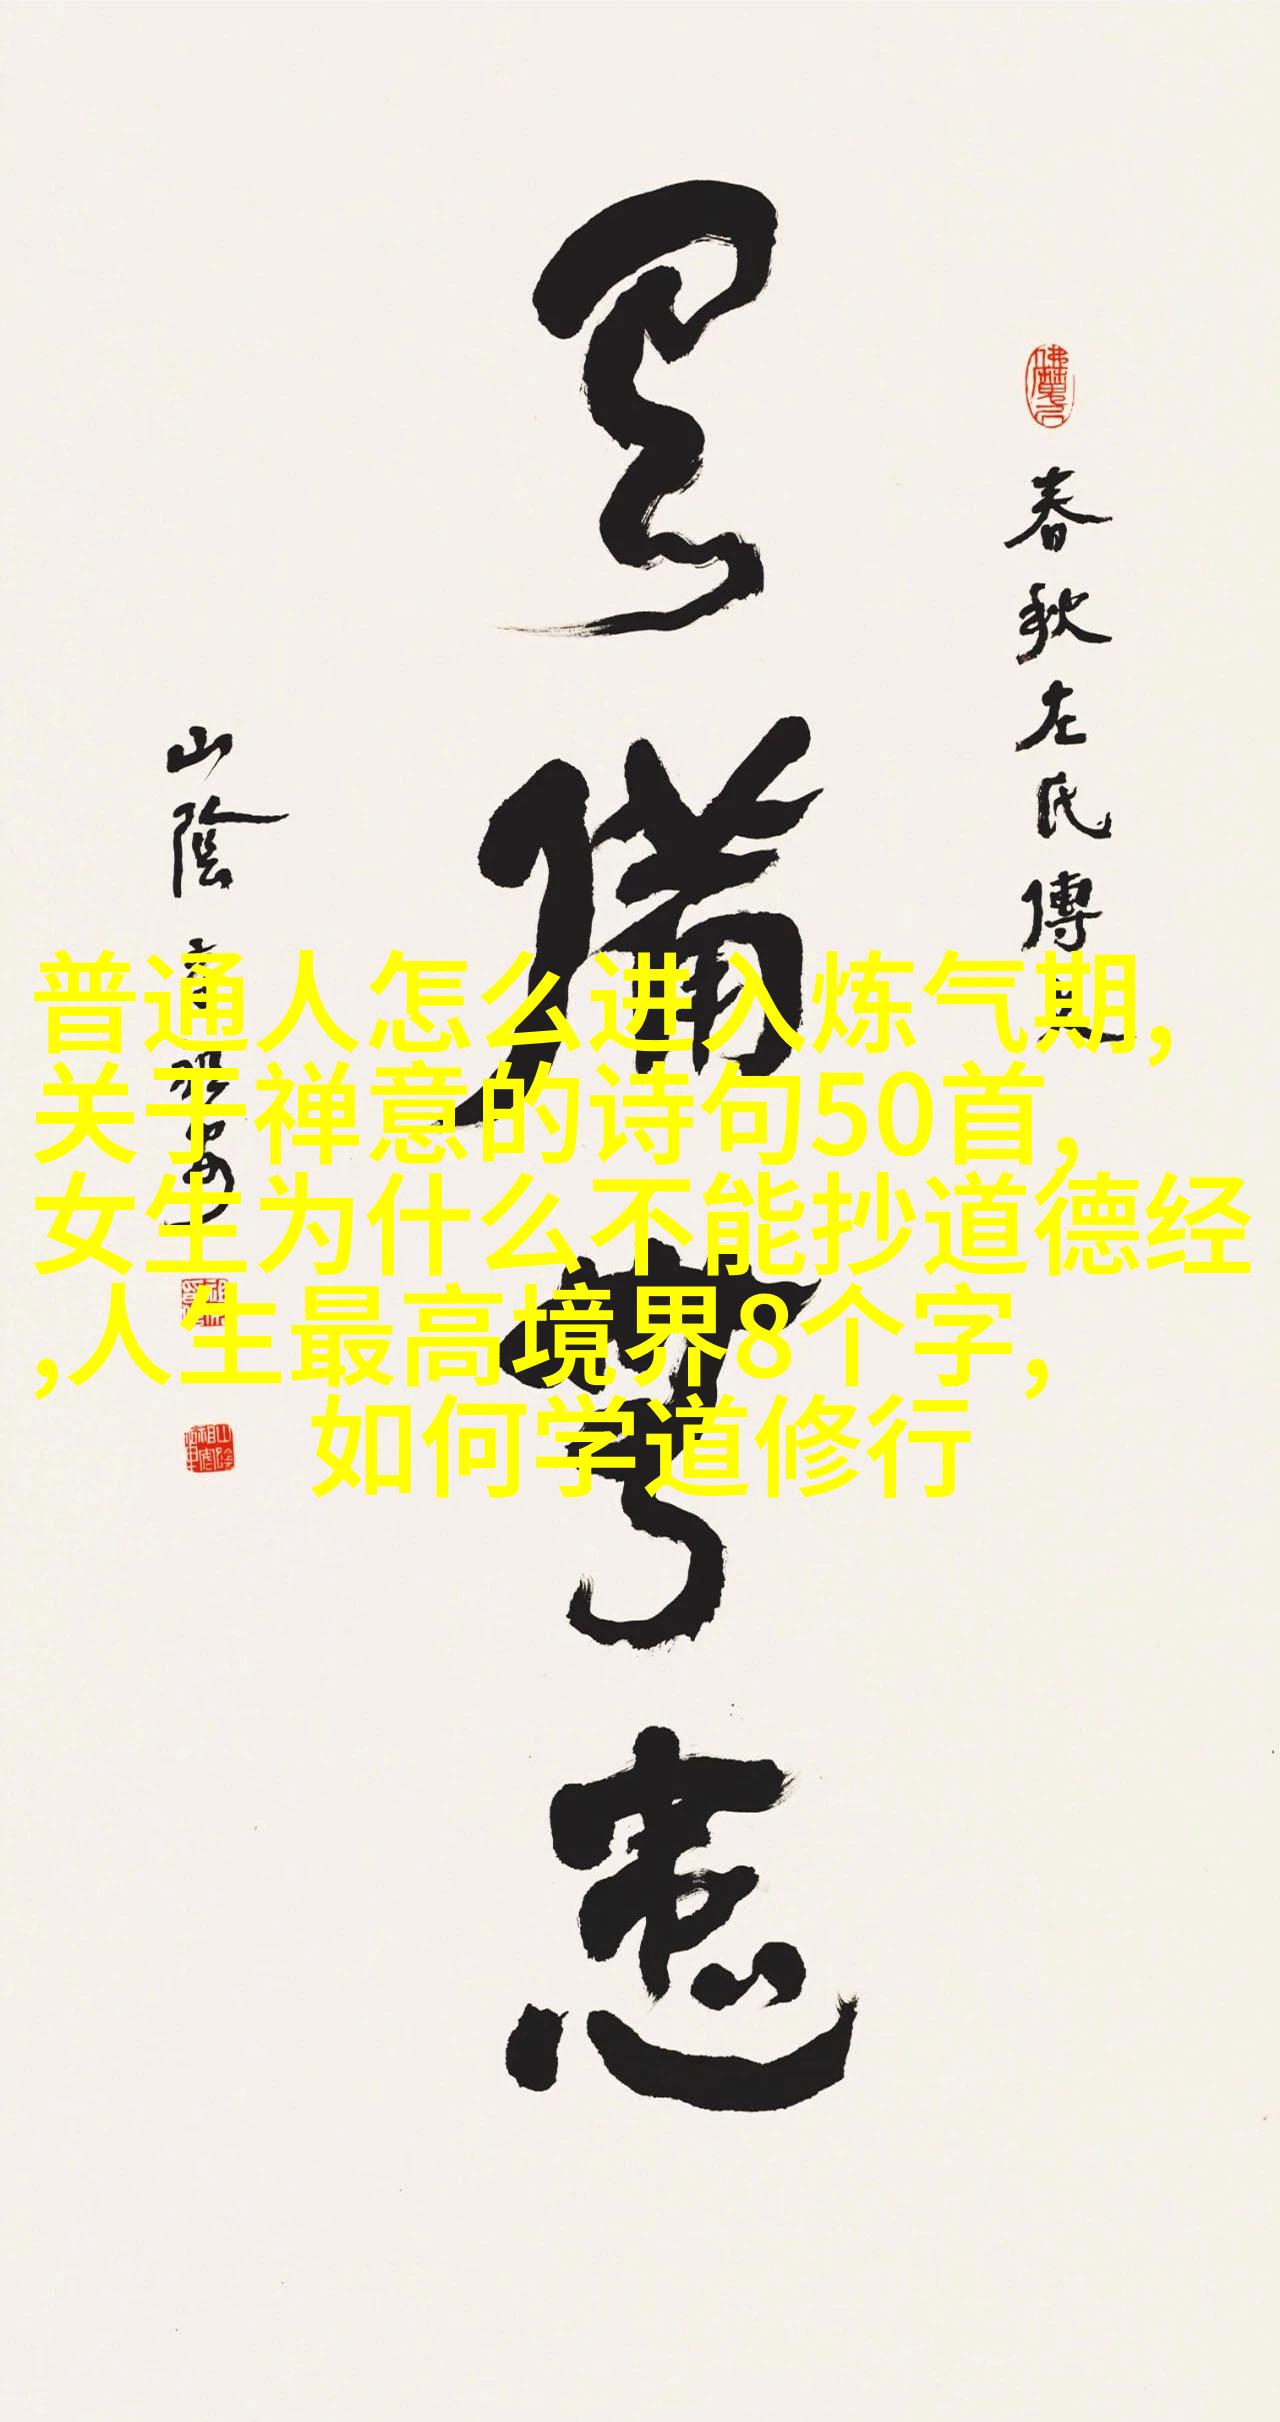 春秋左氏傳
有備無患
山陰
普通人怎么进入炼气期,
关于禅意的诗句50首,
女生为什么不能抄道德经
,人生最高境界8个字,
如何学道修行